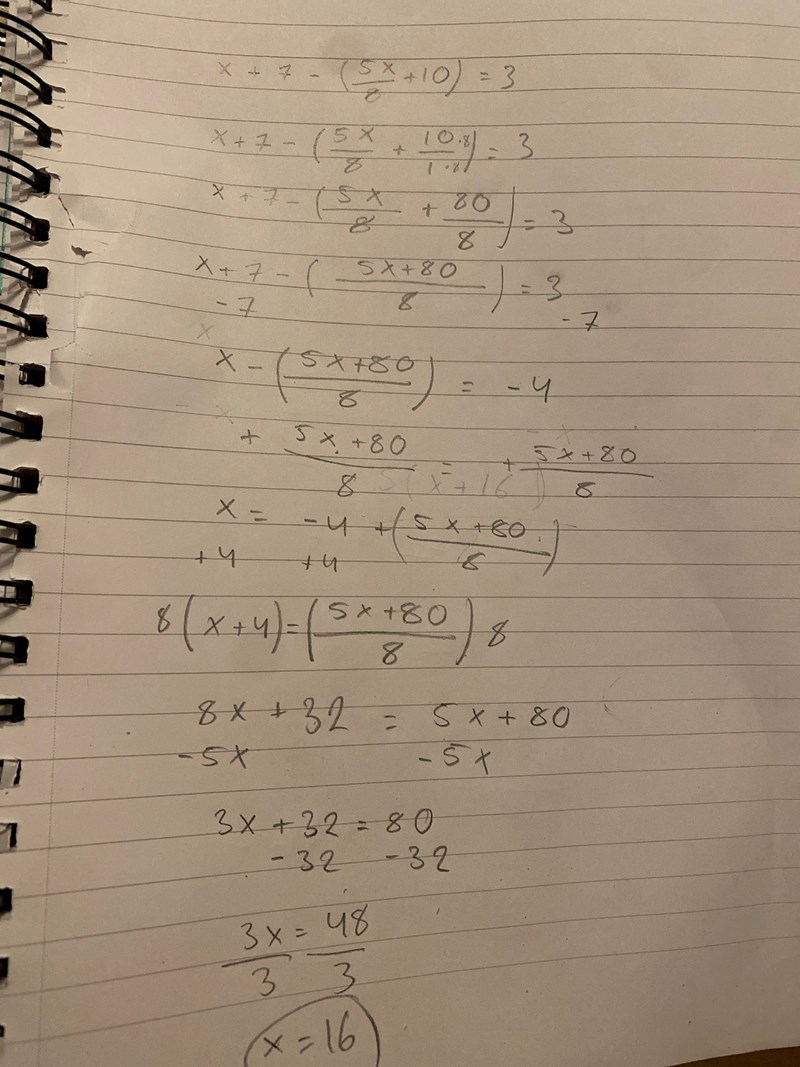 x + 7 - (5x/8 + 10) = 3
x + 7 - (5x/8 + 10·8/1·8) = 3
x + 7 - (5x/8 + 80/8) = 3
x + 7 - (5x+80/8) = 3
-7 -7
x - (5x+80/8) = -4
+ 5x+80/8 = + 5x+80/8
5(x+16)
x = -4 + (5x+80/8)
+4 +4
8(x+4) = (5x+80/8) 8
8x + 32 = 5x + 80
-5x -5x
3x + 32 = 80
-32 -32
3x/3 = 48/3
x = 16